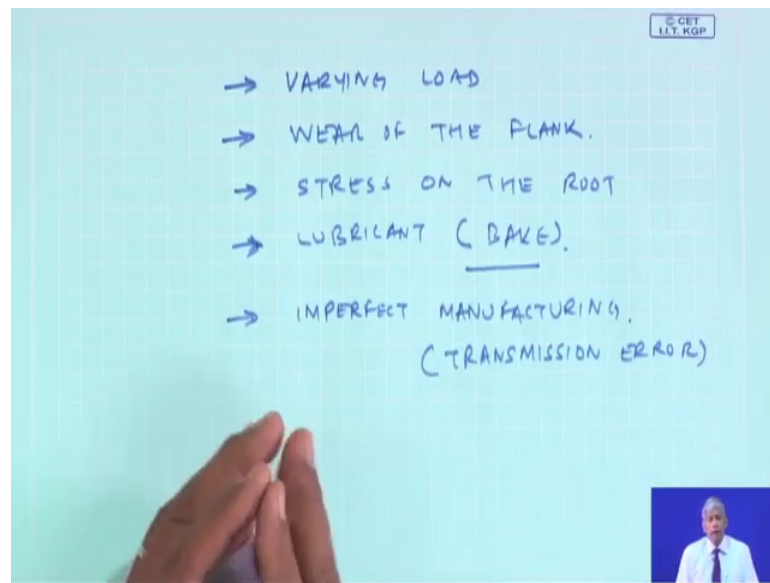 © CET
I.I.T. KGP
→ VARYING LOAD
→ WEAR OF THE FLANK.
→ STRESS ON THE ROOT
→ LUBRICANT (BAKE).
→ IMPERFECT MANUFACTURING.
(TRANSMISSION ERROR)